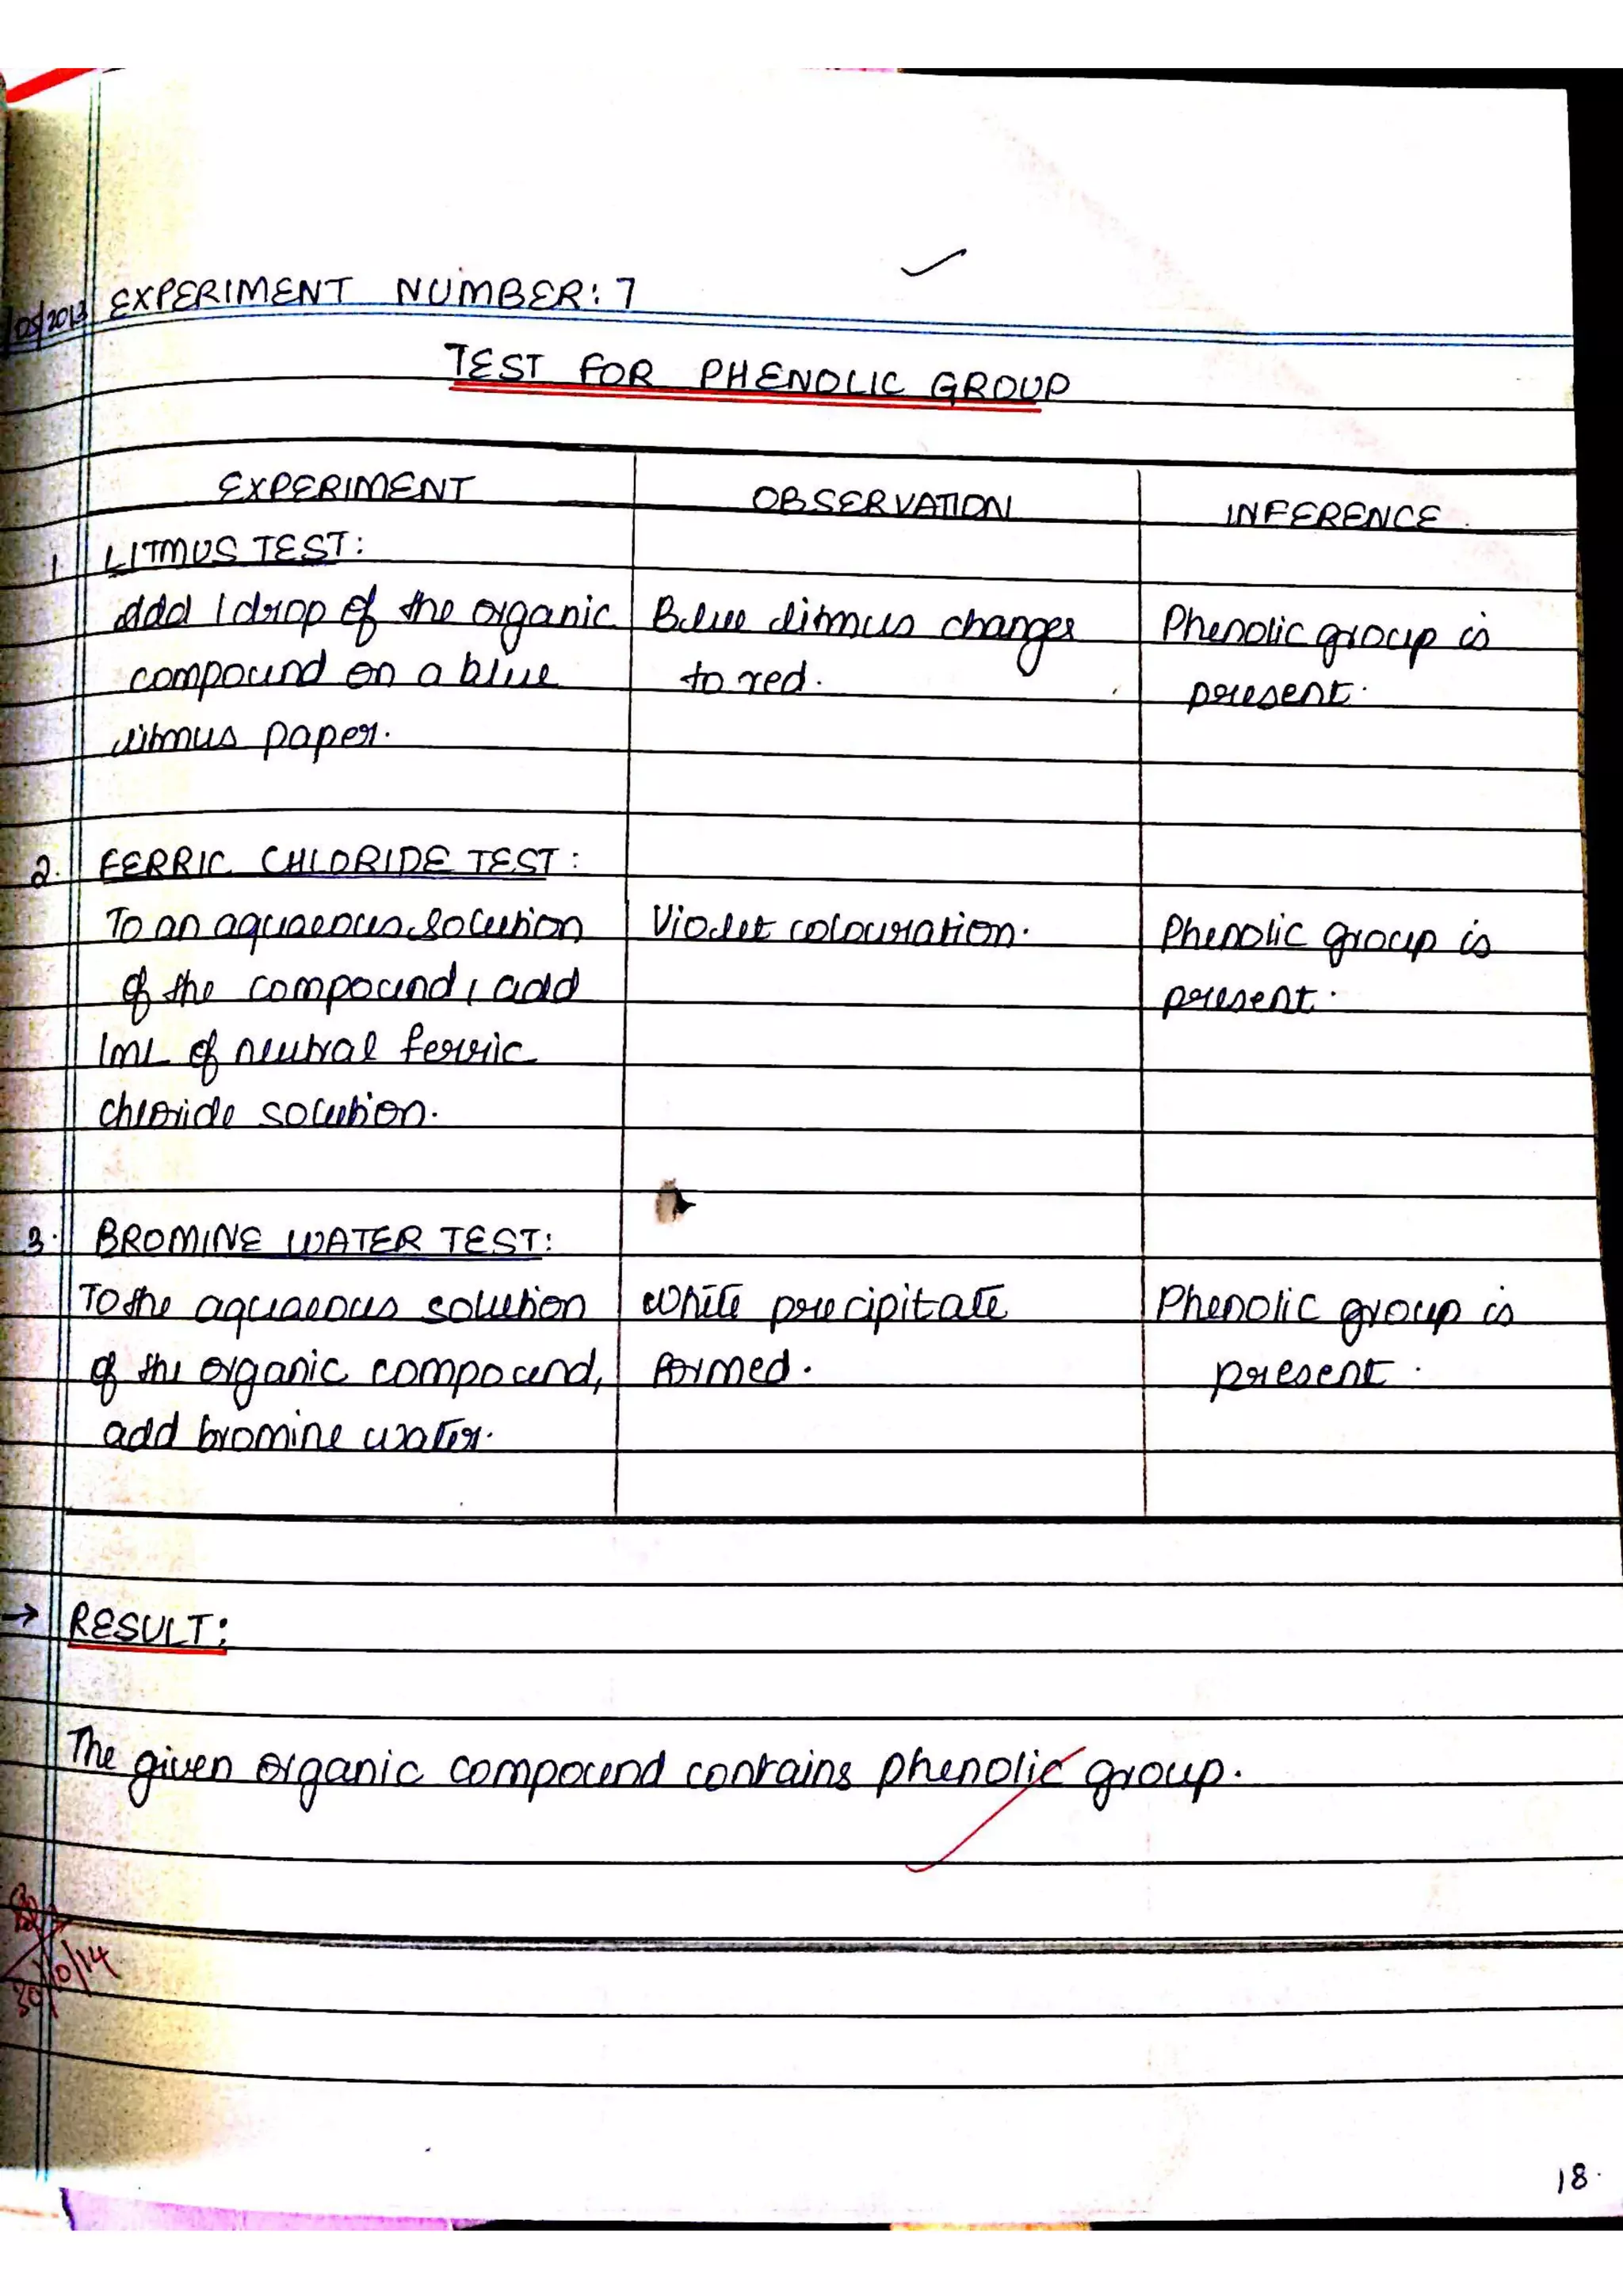 EXPERIMENT NUMBER: 7
05/2013
TEST FOR PHENOLIC GROUP
EXPERIMENT OBSERVATION INFERENCE.
1 LITMUS TEST:
Add 1 drop of the organic Blue litmus changes Phenolic group is
compound on a blue to red. present.
litmus paper.
2. FERRIC CHLORIDE TEST:
To an aquaeous solution Violet colouration. Phenolic group is
of the compound, add present.
1mL of neutral ferric
chloride solution.
3. BROMINE WATER TEST:
To the aquaeous solution White precipitate Phenolic group is
of the organic compound, formed. present.
add bromine water.
→ RESULT:
The given organic compound contains phenolic group.
30/10/14
18.